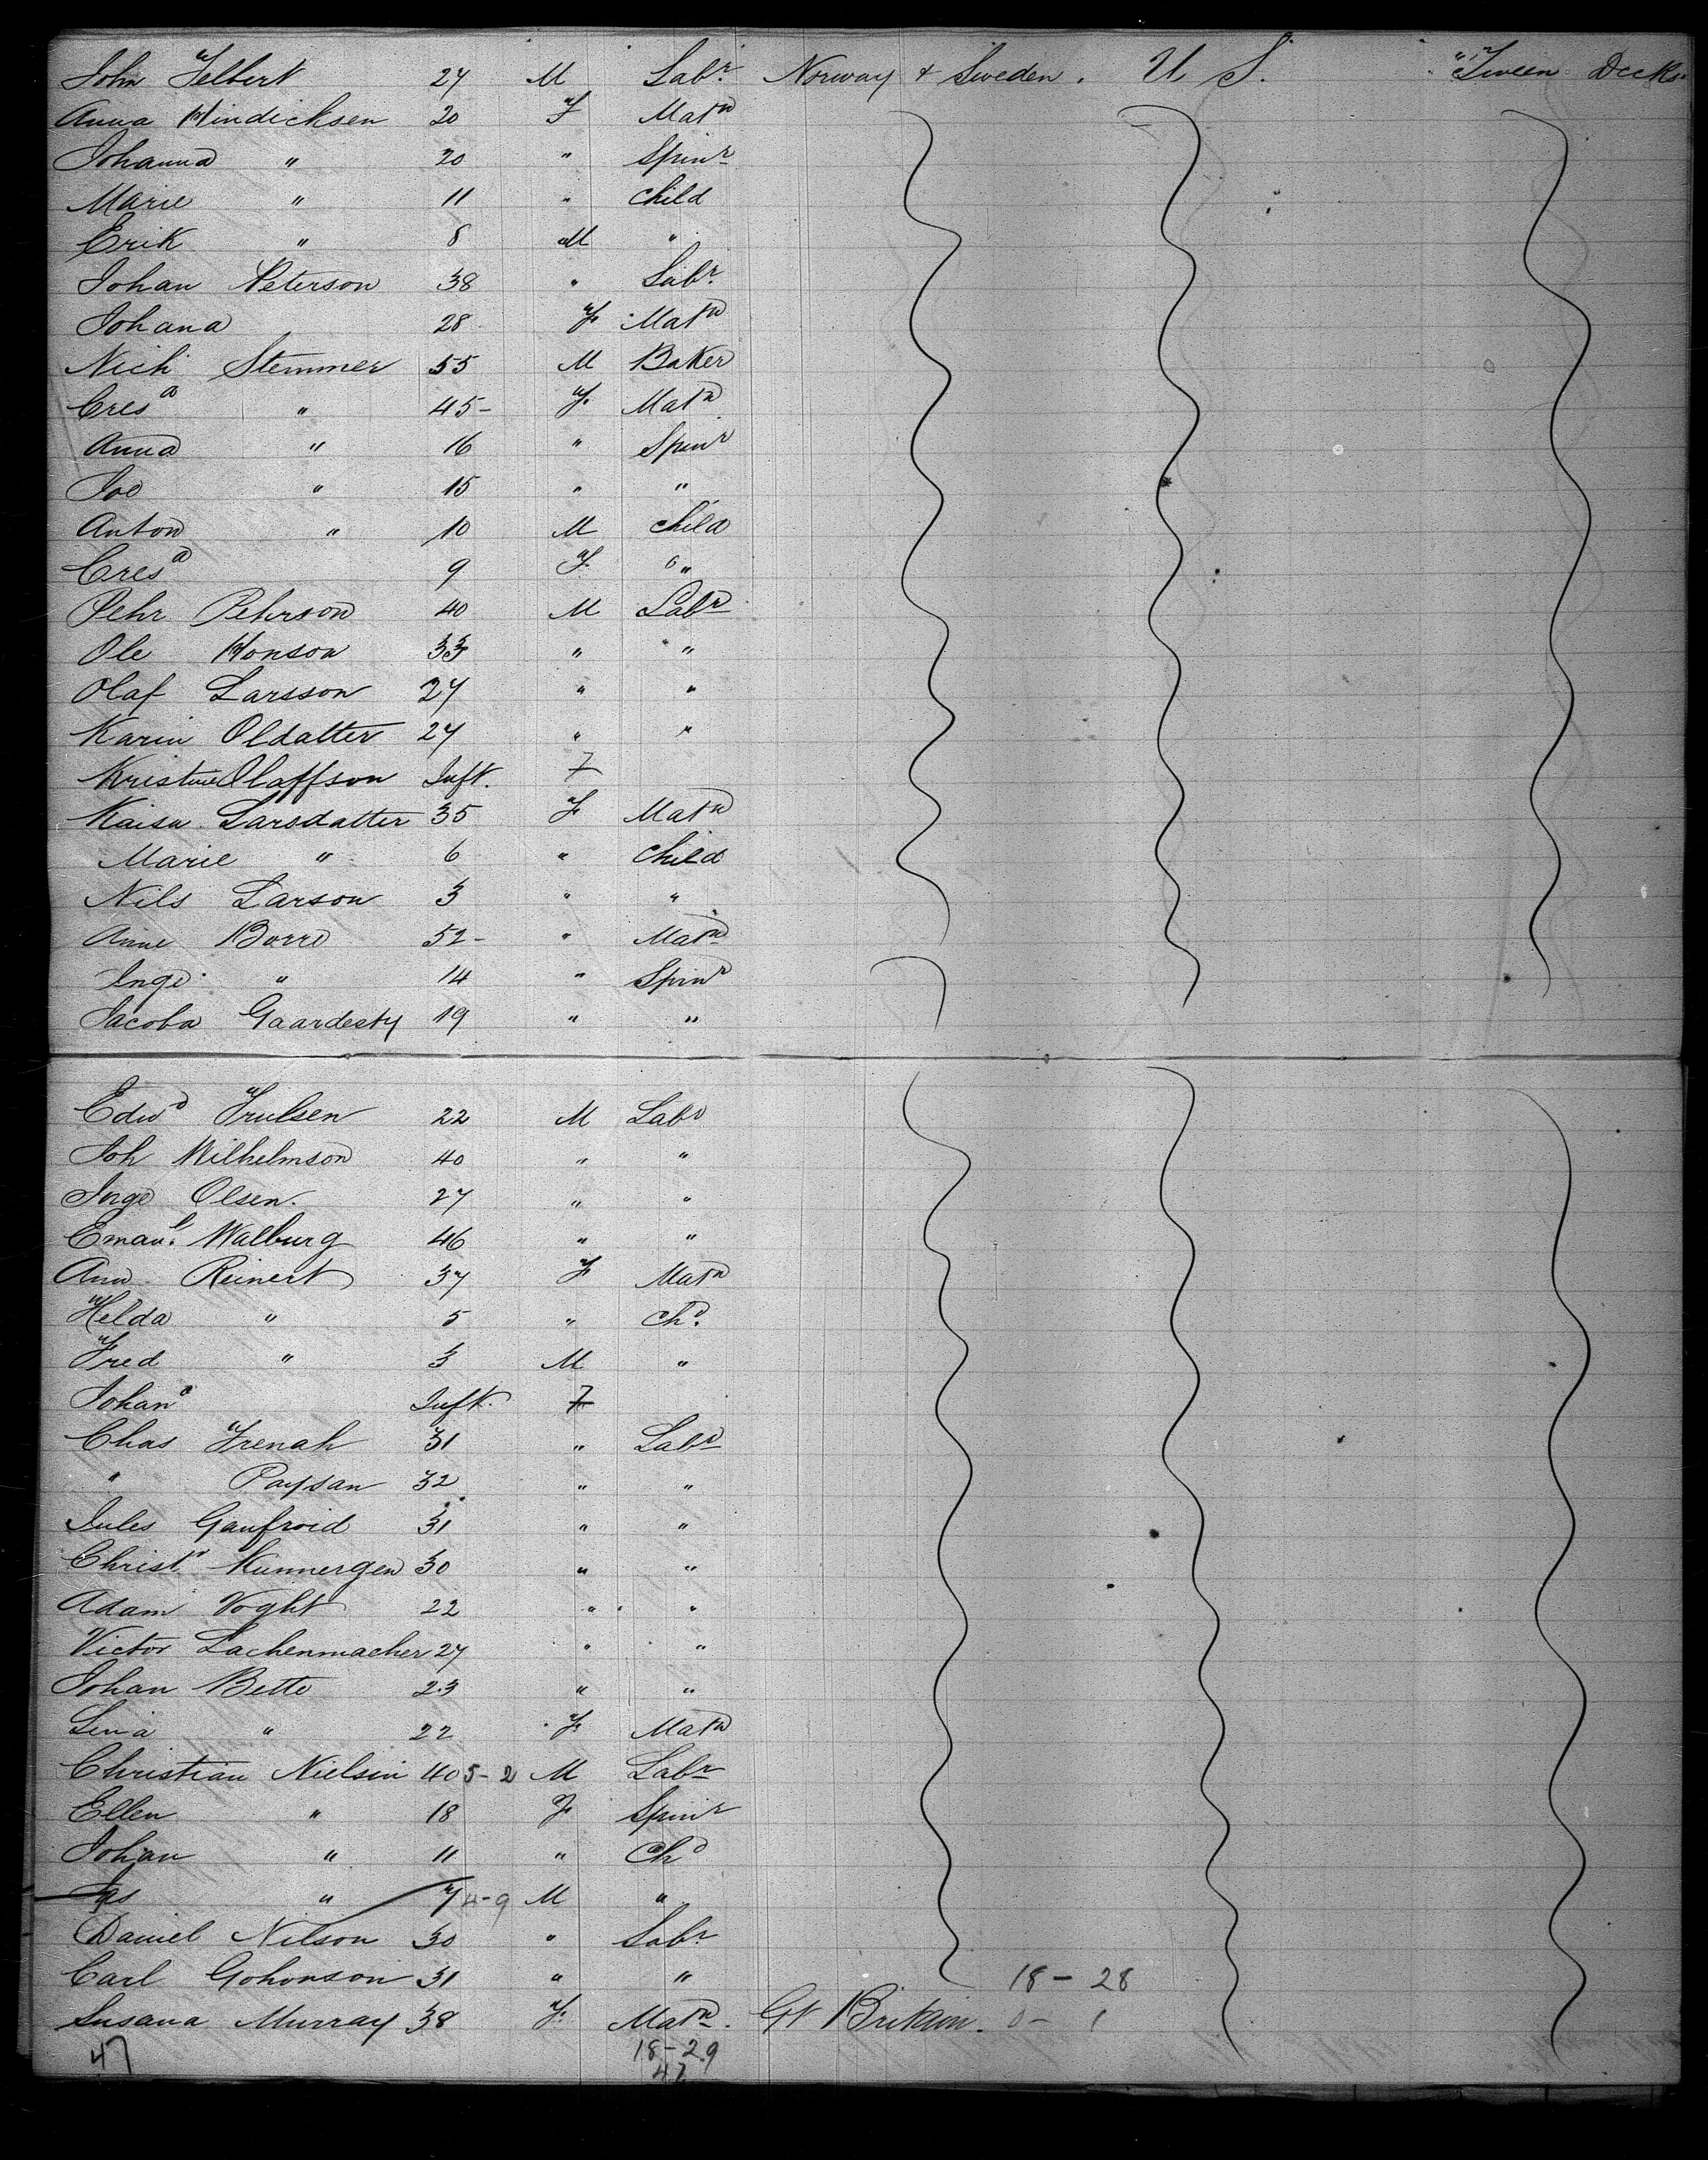 John Felbert 27 M Labr Norway & Sweden. U S. "Tween Decks
Anna Hindicksen 20 F Matn
Johanna " 20 " Spinr
Marie " 11 " Child
Erik " 8 M "
Johan Peterson 38 " Labr
Johana 28 F Matn
Nich Stemmer 55 M Baker
Cresa " 45- F Matn
Anna " 16 " Spinr
Joe " 15 " "
Anton " 10 M Child
Cresa 9 F "
Pehr Pehrson 40 M Labr
Ole Honson 33 " "
Olaf Larsson 27 " "
Karin Oldatter 27 " "
Kristine Olaffson Inft. 7
Kaisa Larsdatter 35 F Matn
Marie " 6 " Child
Nils Larson 3 " "
Anne Borre 52- " Matn
Inge " 14 " Spinr
Jacoba Gaardesty 19 " "
Edwd Trulsen 22 M Labr
Joh Wilhelmson 40 " "
Inge Olsen. 27 " "
Emanl. Walburg 46 " "
Ann Reinert 37 F Matn
Helda " 5 " Chd.
Fred " 3 M "
Johane Inft. 7
Chas Frenah 31 " Labr
" Paysan 32 " "
Jules Gaufroid 31 " "
Christn Kunnergen 30 " "
Adam Voght 22 " "
Victor Lachenmacher 27 " "
Johan Bette 23 " "
Lina " 22 F Matn
Christian Nielsin 40 5-2 M Labr
Ellen " 18 F Spinr
Johan " 11 " Chd
Jas " 7 4-9 M "
Daniel Nilson 30 " Labr
Carl Gohonson 31 " " 18 - 28
Susana Murray 38 F. Matn. Gt Britain. 0 - 1
47 18-29
47